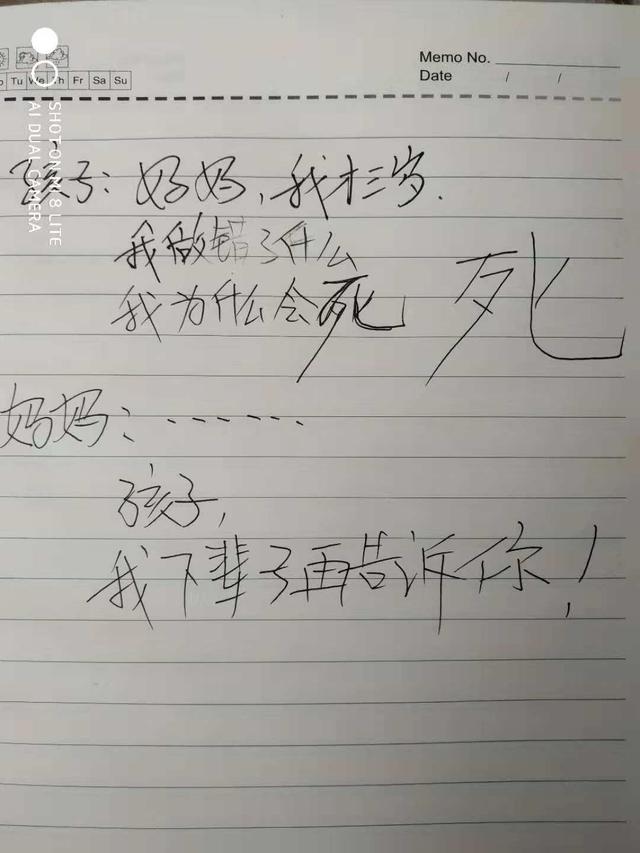 Tu We Th Fr Sa Su
Memo No.
Date / /
SHOT ON MI 8 LITE
AI DUAL CAMERA
孩子:妈妈,我才三岁.
我做错了什么
我为什么会死 死
妈妈:······
孩子,
我下辈子再告诉你!